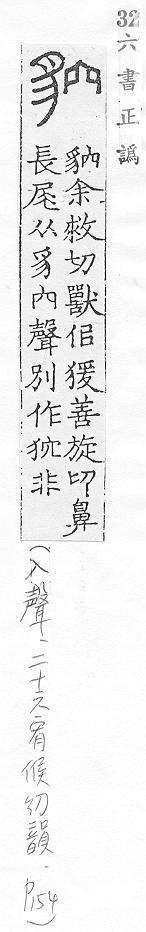 32六書正譌
貁
貁余救切獸佀猨善旋卬鼻
長尾从豸內聲別作狖非
(入聲、二十六宥候幼韻.P.154)